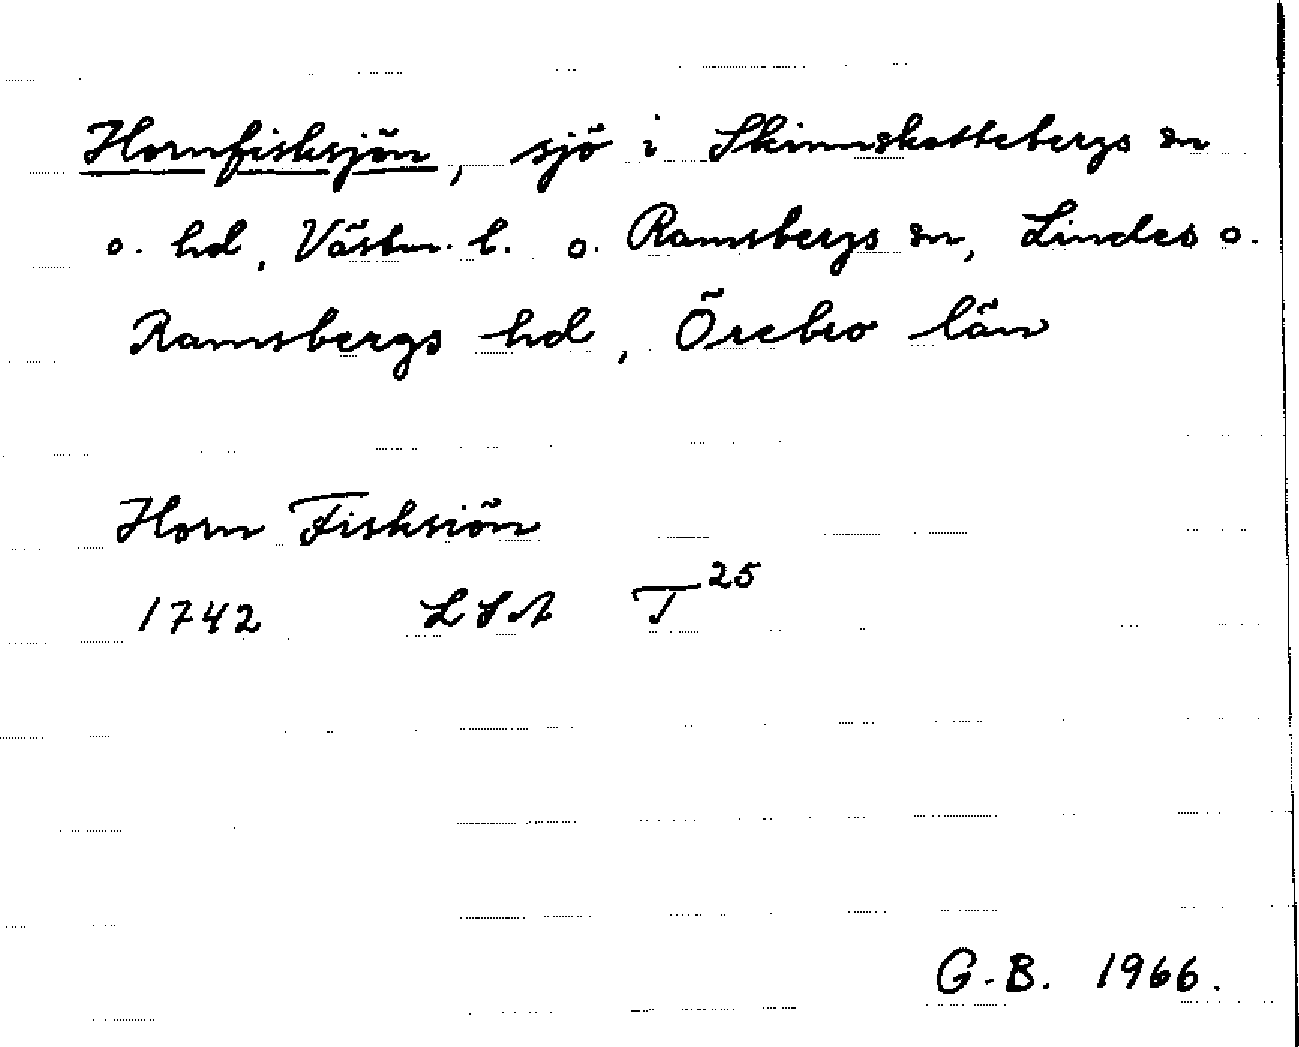 Hornfisksjön, sjö i Skinnskattebergs sn
o. hd, Västm. l. o. Ramsbergs sn, Lindes o.
Ramsbergs hd, Örebro län
Horn Fisksiön
1742 LSA T 25
G.B. 1966.